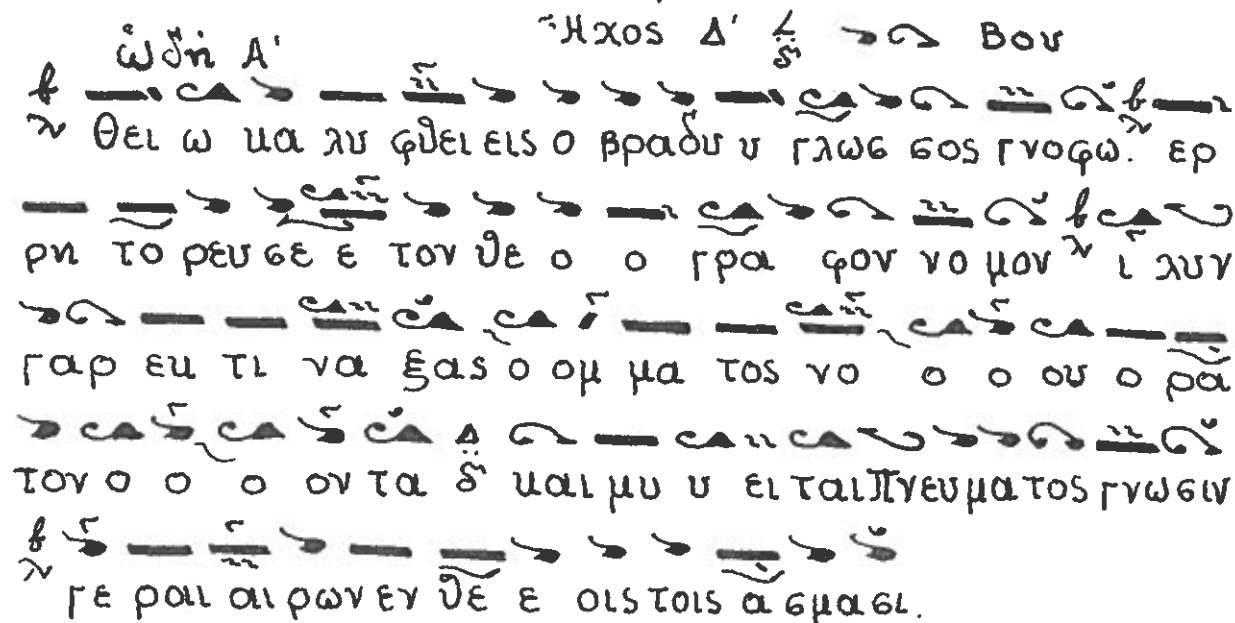 ᾠδὴ Α' Ἦχος Δ' Βου
θει ω κα λυ φθει εις ο βραδυ υ γλωσ σος γνοφω. ερ
ρη το ρευ σε ε τον θε ο ο γρα φον νο μον ι λυν
γαρ εκ τι να ξας ο ομ μα τος νο ο ο ου ο ρᾳ
τον ο ο ο ον τα και μυ υ ει ται Πνευματος γνωσιν
γε ραι αι ρων εν θε ε οις τοις ᾀσμασι.